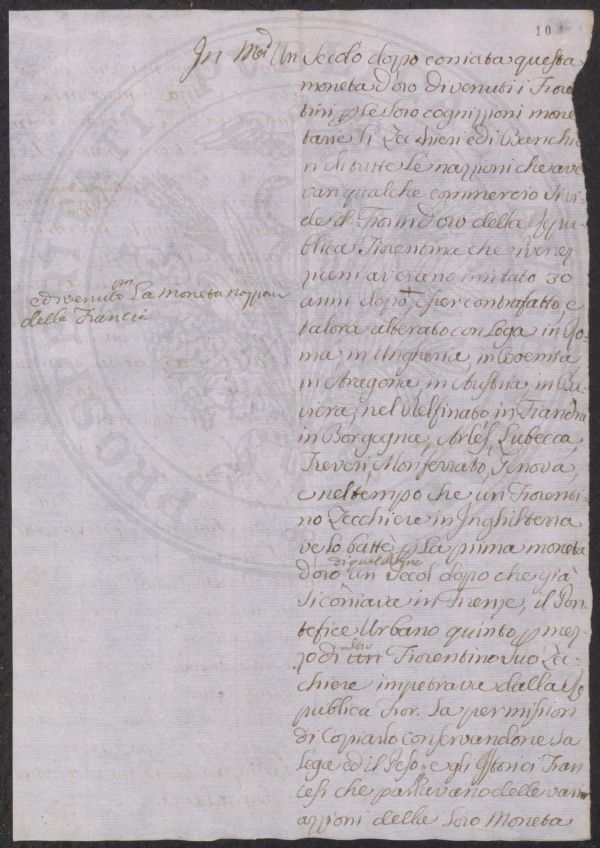 10
In Mod.
Un Secolo dopo coniata questa
moneta d'oro divenuti i Fioren
tini p le loro cognizioni mone
tarie li Zecchieri ed i Banchie
ri di tutte le nazzioni che ave
van qualche commercio si vi
de il Fiorin d'oro della Repu
blica Fiorentina che i Venez
ziani averano imitato 30
anni dopo, esser contrafatto, e
talora alterato con Lega in Ro=
ma, in Ungheria, in Boemia
in Aragona, in Austria in Ba
viera, nel Delfinato in Fiandra
in Borgogna, Arles, Lubecca,
Treveri, Monferrato, Genova,
e nel tempo che un Fiorenti
no Zecchiere in Inghilterra
ve lo battè p La prima moneta
d'oro di quel Regno un Secol dopo che già
si coniava in Firenze, il Pon
tefice Urbano quinto p mez
zo di altro Fiorentino suo Zec=
chiere impetrava dalla Re
publica Fior. la permissione
di Copiarlo conservandone la
Lega ed il Peso e gli Istorici Fran
cesi che parlavano delle vari
azzioni della loro Moneta
ed divenuto poi La Moneta nazzion
della Francia
PROSPERITATI